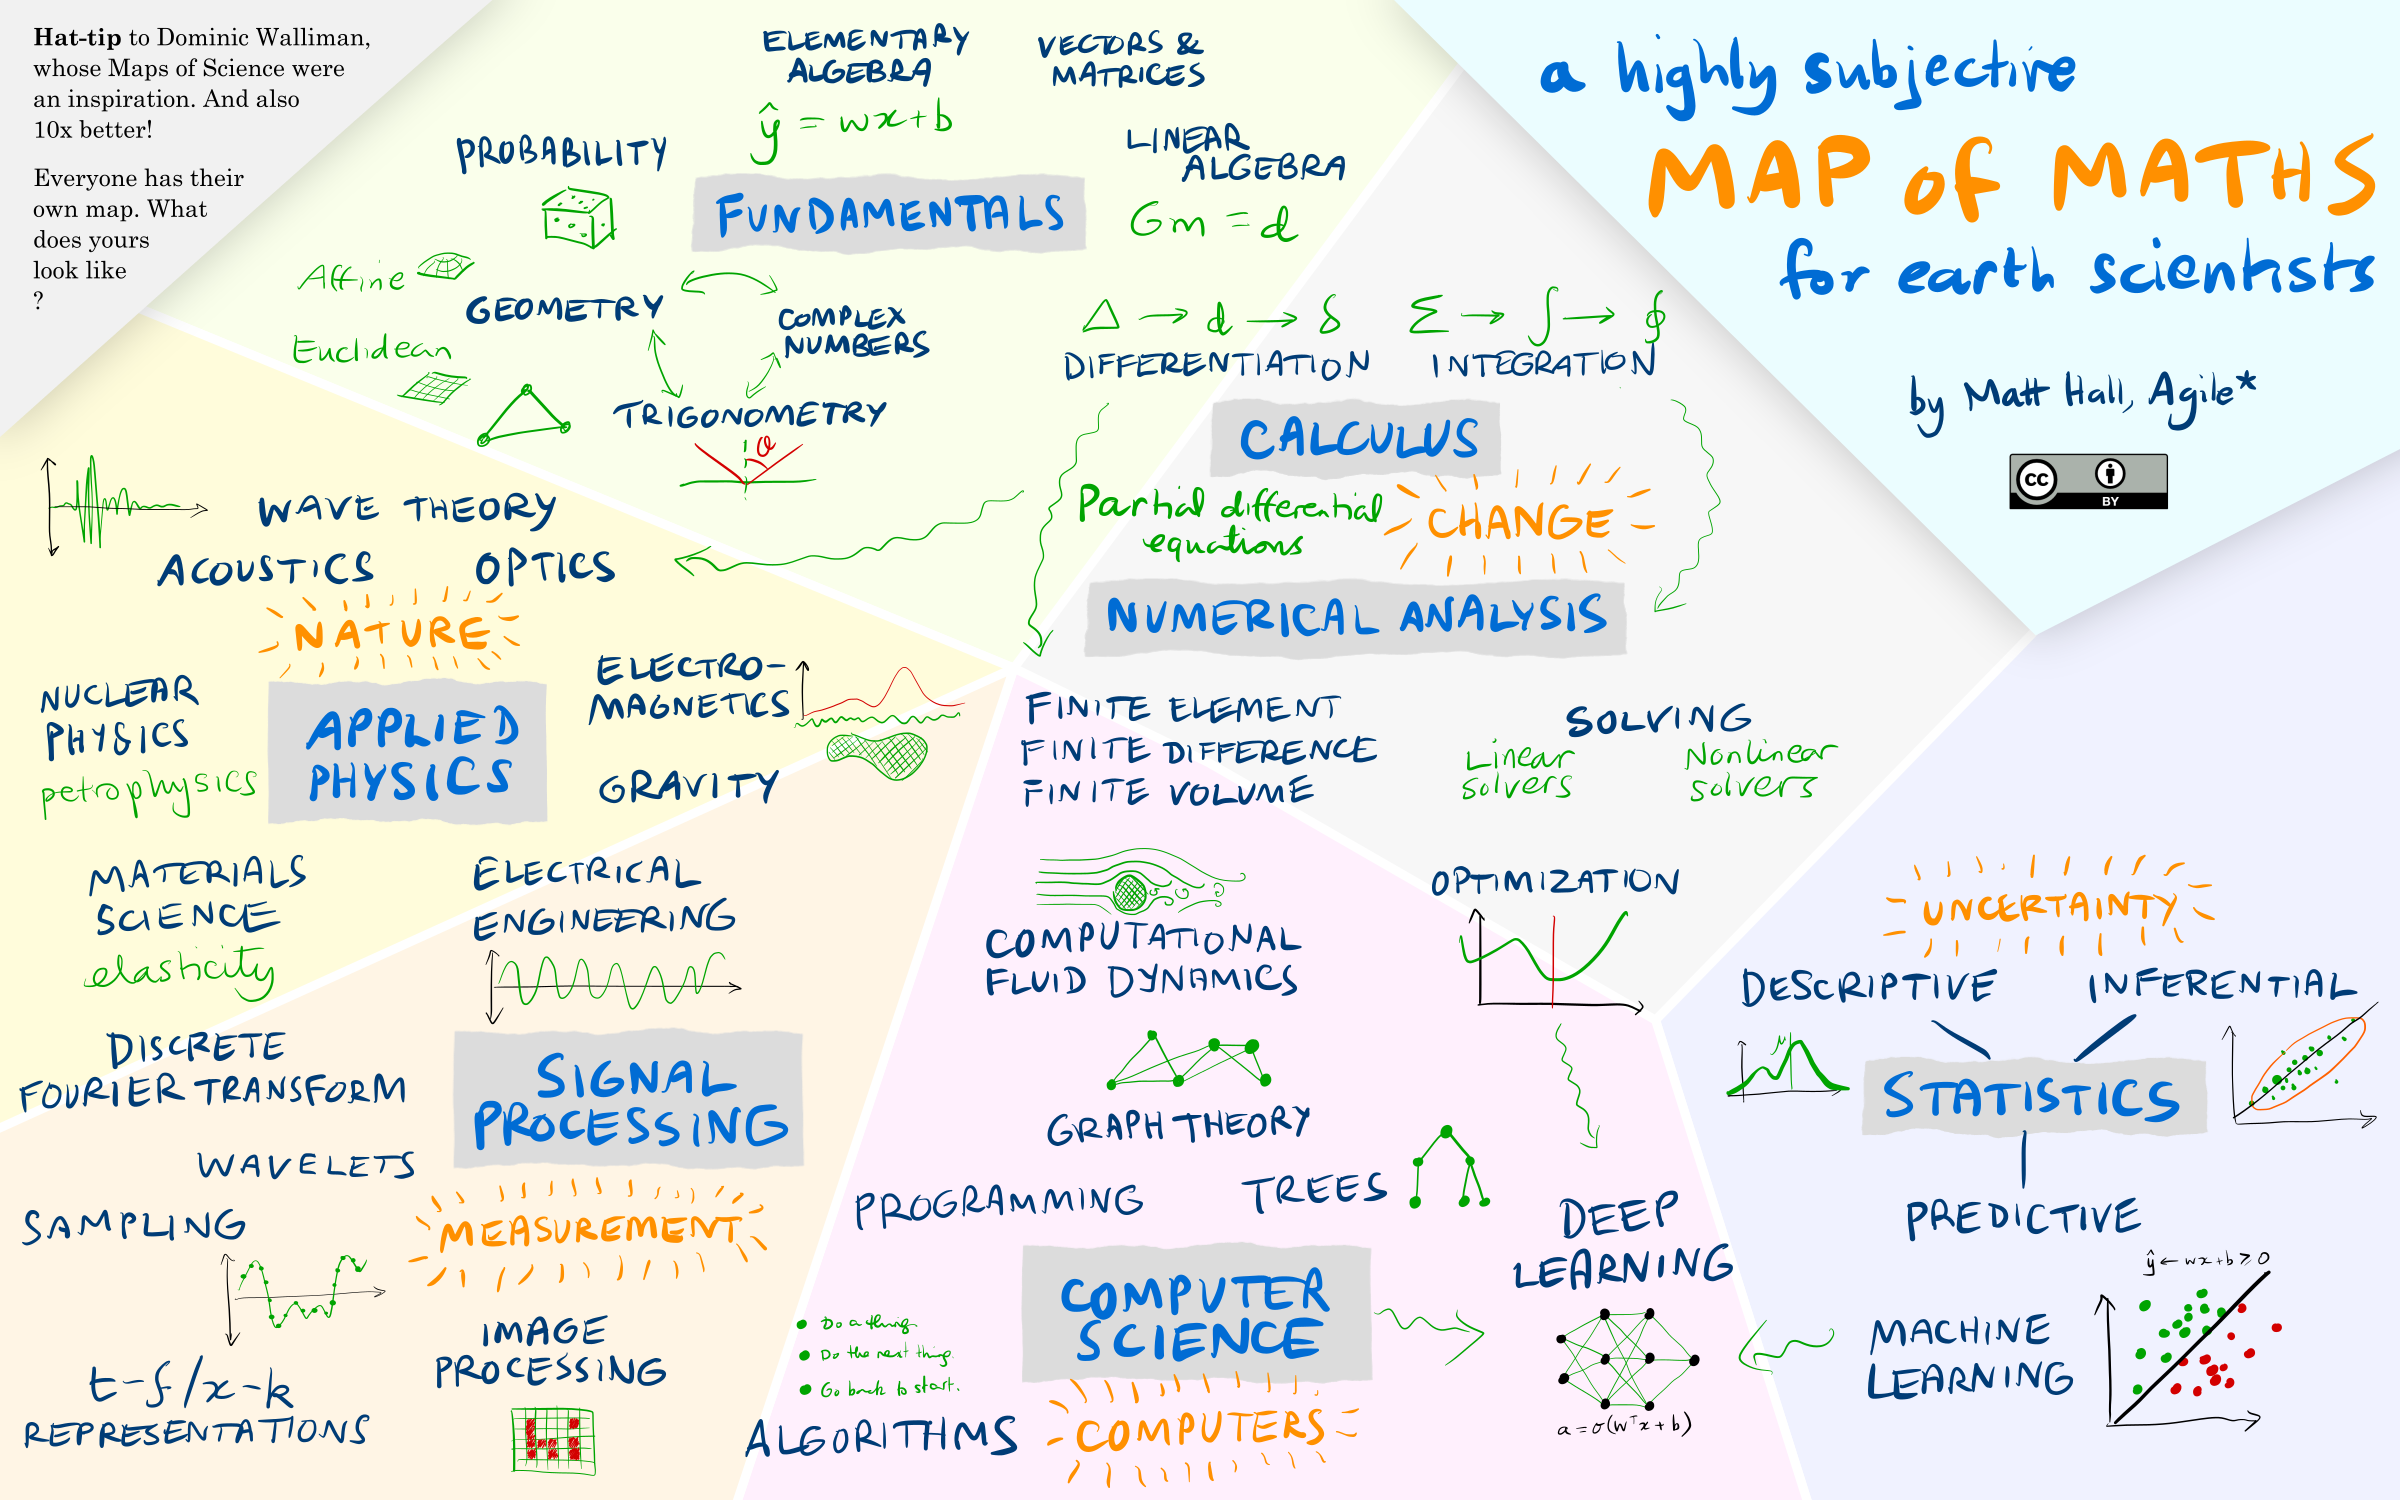 Hat-tip to Dominic Walliman,
whose Maps of Science were
an inspiration. And also
10x better!
Everyone has their
own map. What
does yours
look like
?
a highly subjective
MAP of MATHS
for earth scientists
by Matt Hall, Agile*
CC
BY
ELEMENTARY
ALGEBRA
ŷ = wx+b
VECTORS &
MATRICES
PROBABILITY
LINEAR
ALGEBRA
Gm = d
FUNDAMENTALS
Affine
GEOMETRY
COMPLEX
NUMBERS
Euclidean
TRIGONOMETRY
θ
Δ → d → δ
DIFFERENTIATION
Σ → ∫ → ∮
INTEGRATION
CALCULUS
Partial differential
equations
CHANGE
NUMERICAL ANALYSIS
FINITE ELEMENT
FINITE DIFFERENCE
FINITE VOLUME
SOLVING
Linear
solvers
Nonlinear
solvers
OPTIMIZATION
WAVE THEORY
ACOUSTICS
OPTICS
NATURE
NUCLEAR
PHYSICS
petrophysics
APPLIED
PHYSICS
ELECTRO-
MAGNETICS
GRAVITY
MATERIALS
SCIENCE
elasticity
ELECTRICAL
ENGINEERING
DISCRETE
FOURIER TRANSFORM
SIGNAL
PROCESSING
WAVELETS
SAMPLING
MEASUREMENT
IMAGE
PROCESSING
Hi
t-f/x-k
REPRESENTATIONS
COMPUTATIONAL
FLUID DYNAMICS
GRAPH THEORY
PROGRAMMING
TREES
COMPUTER
SCIENCE
Do a thing.
Do the next thing.
Go back to start.
ALGORITHMS
COMPUTERS
DEEP
LEARNING
a = σ(wᵀx + b)
UNCERTAINTY
DESCRIPTIVE
INFERENTIAL
μ
STATISTICS
PREDICTIVE
ŷ ← wx+b ≥ 0
MACHINE
LEARNING